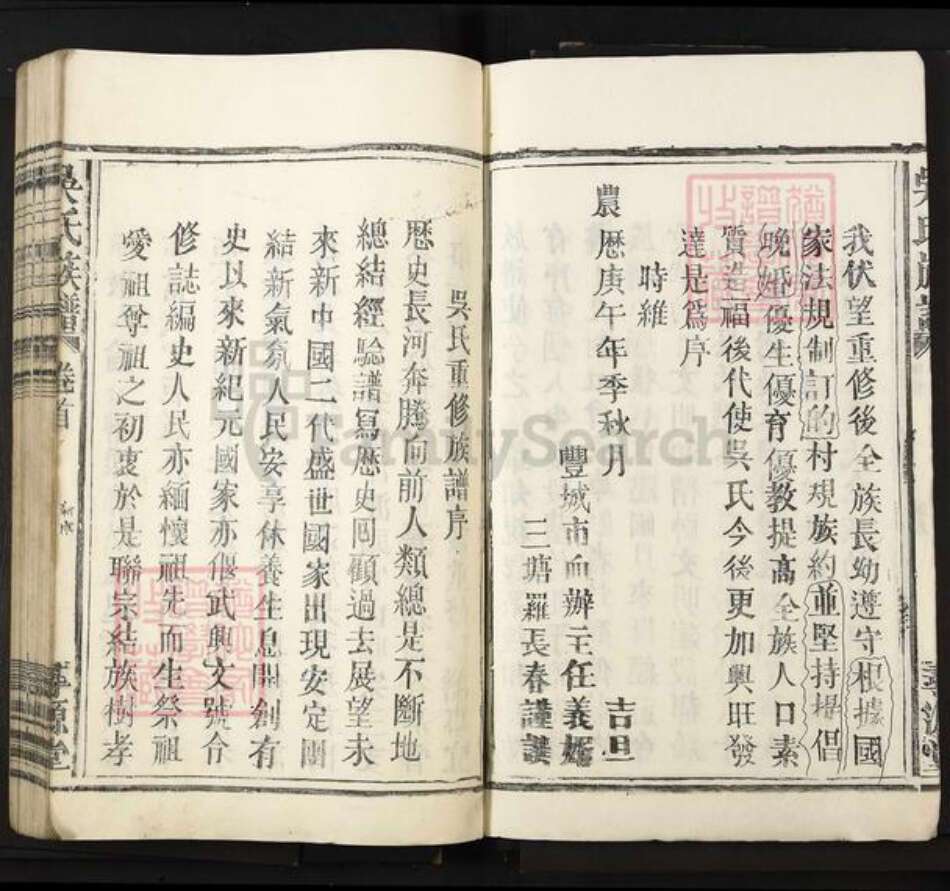 我伏望重修後全族長幼遵守根據國
家法規制訂的村規族約並堅持提倡
晚婚優生優育優教提高全族人口素
質造福後代使吳氏今後更加興旺發
達是爲序
時維
農歷庚午年季秋月 吉旦
豐城市血辦主任義
三塘羅長春謹譔
吳氏重修族譜序
歷史長河奔騰向前人類總是不斷地
總結經驗譜寫歷史回顧過去展望未
來新中國二代盛世國家出現安定團
結新氣氛人民安享休養生息開創有
史以來新紀元國家亦偃武興文號令
修誌編史人民亦緬懷祖先而生祭祖
愛祖尊祖之初衷於是聯宗結族樹孝
吳氏族譜 卷首
FamilySearch